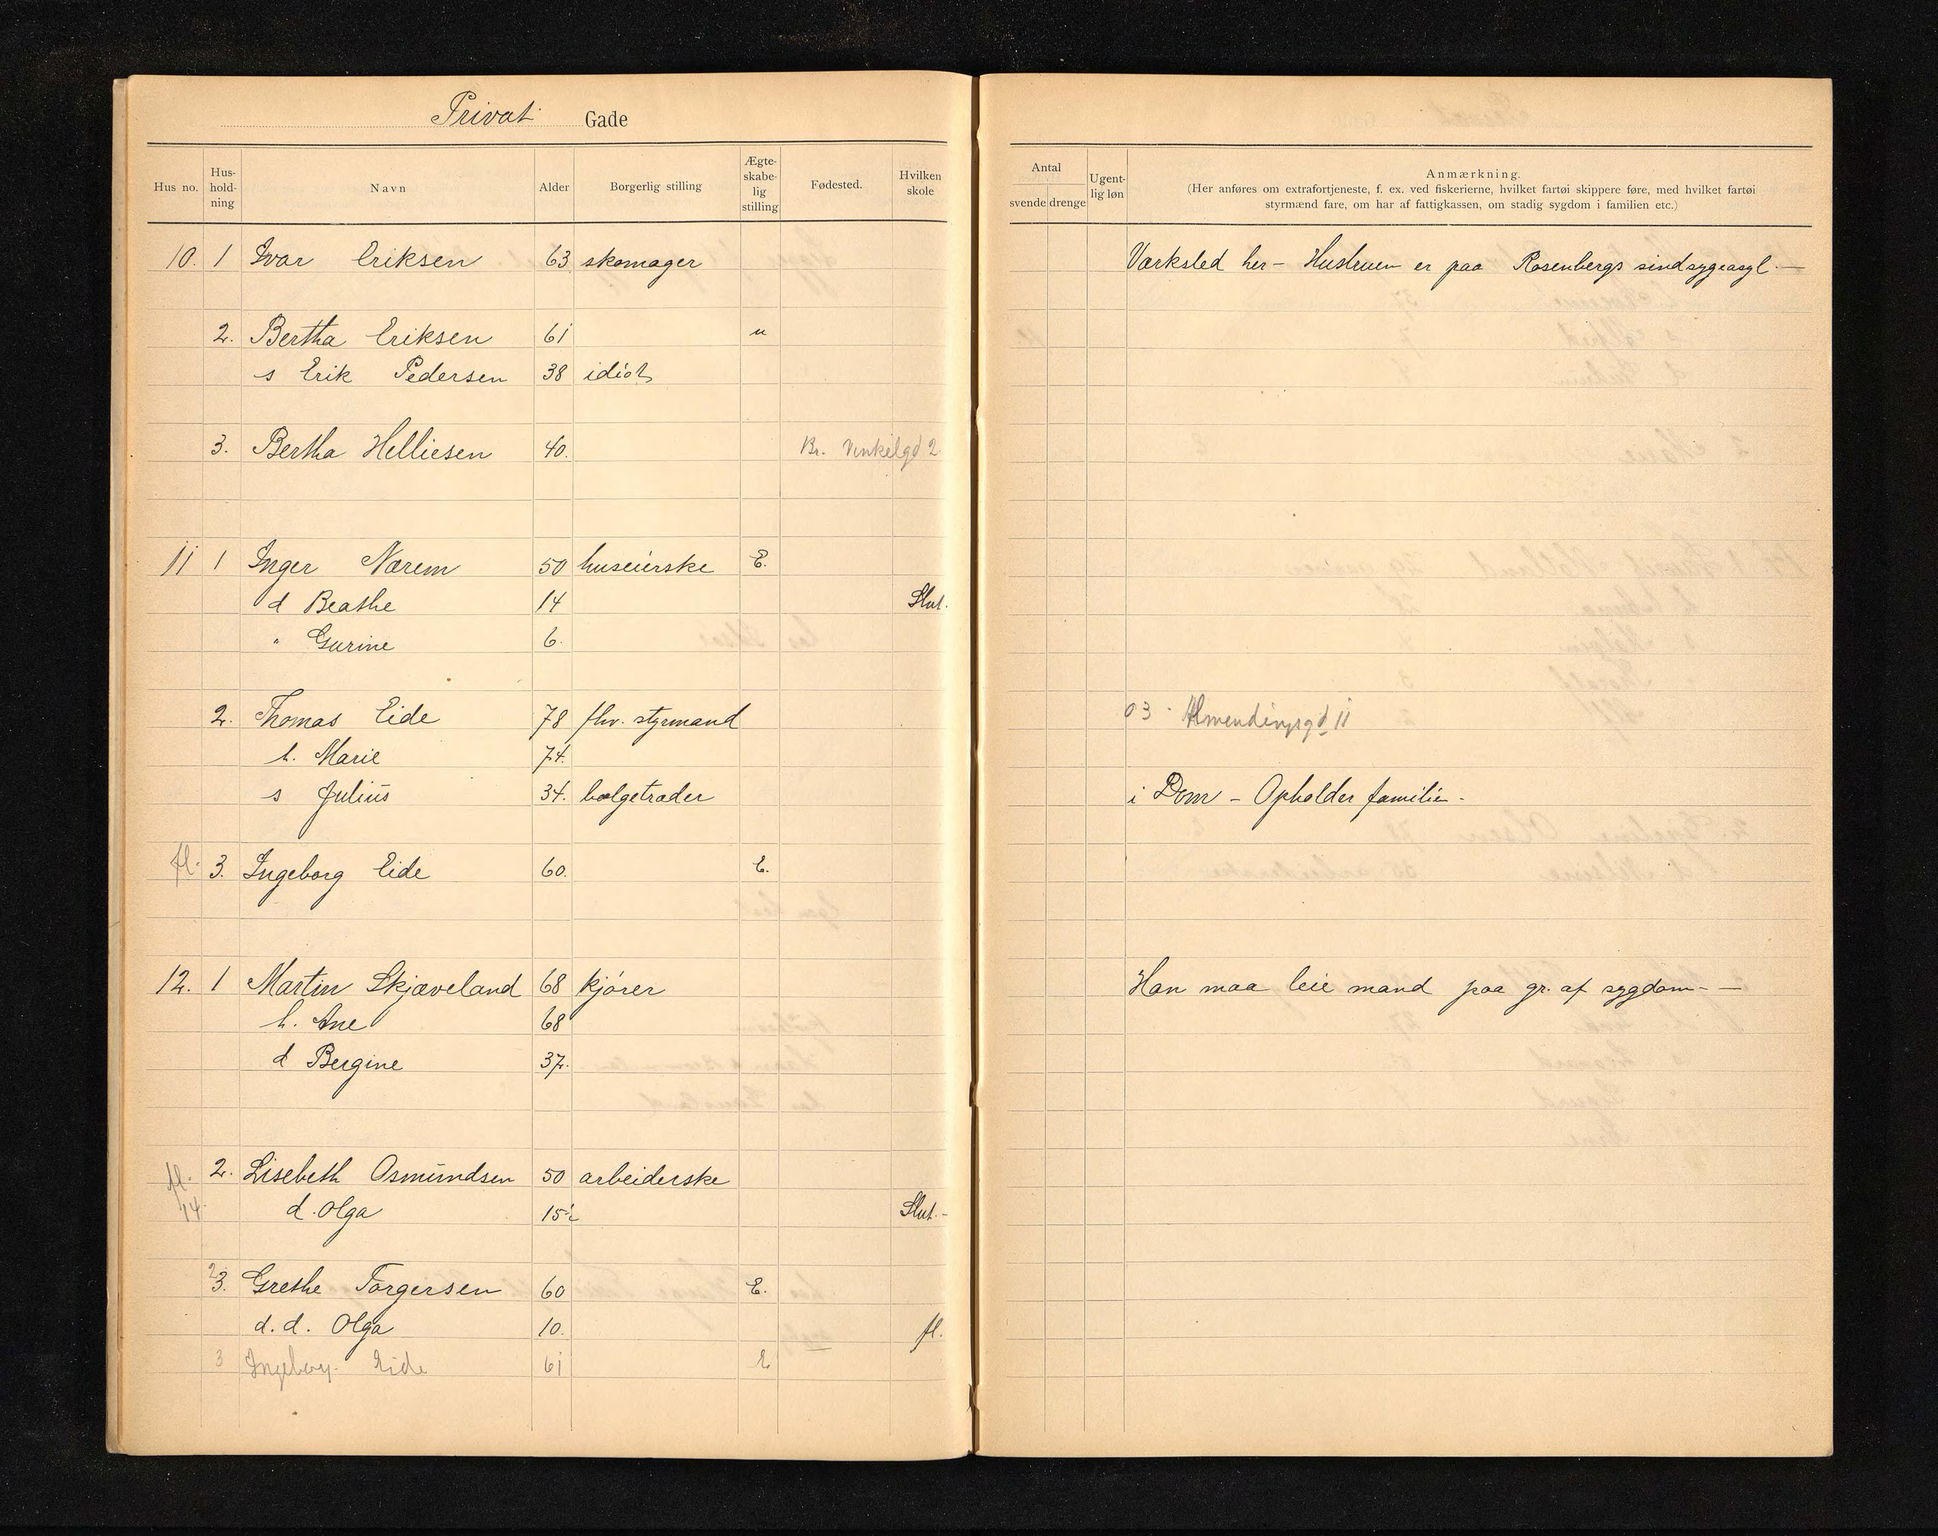 Privat Gade
Hus no. Hus-hold-ning Navn Alder Borgerlig stilling Ægte-skabe-lig stilling Fødested. Hvilken skole
Antal svende drenge Ugent-lig løn Anmærkning.
(Her anføres om extrafortjeneste, f. ex. ved fiskerierne, hvilket fartøi skippere føre, med hvilket fartøi
styrmænd fare, om har af fattigkassen, om stadig sygdom i familien etc.)
10. 1 Ivar Eriksen 63 skomager Værksted her - Hustruen er paa Rosenbergs sindsygeasyl. -
2. Bertha Eriksen 61 u
s Erik Pedersen 38 idiot
3. Bertha Helliesen 40. Br. Vinkelgd 2
11 1 Inger Nærem 50 huseierske E.
d Beathe 14 Slut.
" Gurine 6.
2. Thomas Eide 78 fhv. styrmand 03 Almendingsgd 11
h. Marie 74.
s Julius 34. bælgetræder i Dom - Opholder familie -
fl. 3. Ingeborg Eide 60. E.
12. 1 Martin Skjæveland 68 kjører Han maa leie mand paa gr. af sygdom - -
h. Ane 68
d Bergine 37.
fl. 2. Lisebeth Osmundsen 50 arbeiderske
14. d. Olga 15½ Slut. -
3. Grethe Torgersen 60 E.
d. d. Olga 10. fl.
3 Ingeborg Eide 61 E